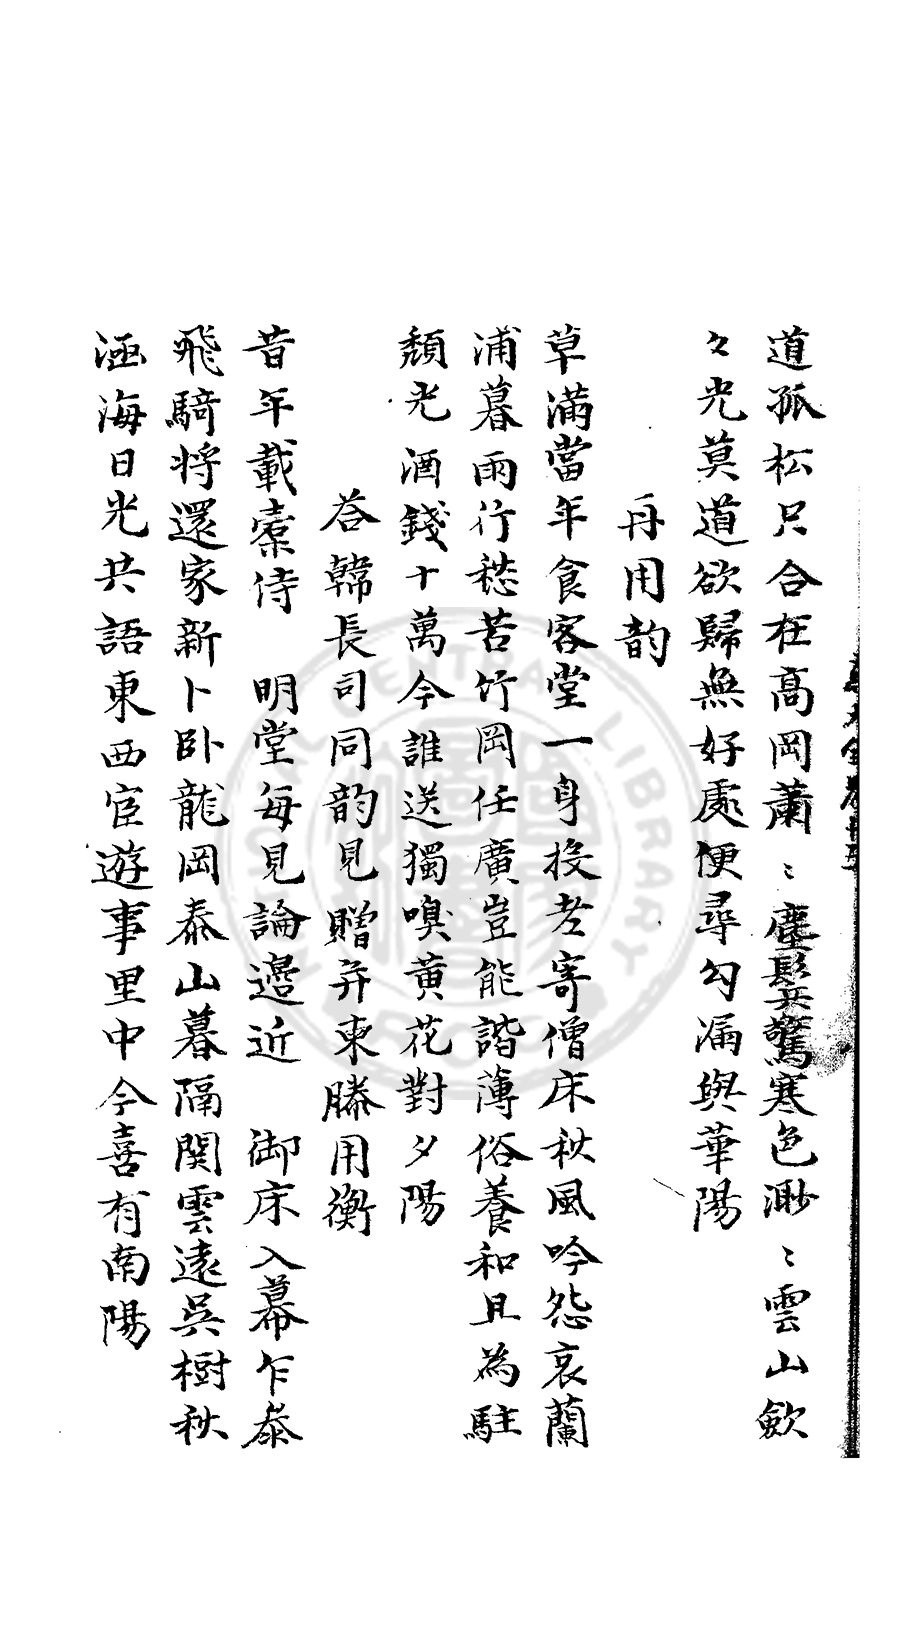 道孤松只合在高岡蕭〻塵鬂驚寒色渺〻雲山歛
々光莫道欲歸無好處便尋勾漏與華陽
再用韵
草滿當年食客堂一身投老寄僧床秋風吟怨哀蘭
浦暮雨行愁苦竹岡任廣豈能諧薄俗養和且為駐
頹光酒錢十萬今誰送獨嗅黄花對夕陽
荅韓長司同韵見贈并柬滕用衡
昔年載橐侍 明堂每見論邉近 御床入幕乍叅
飛騎将還家新卜卧龍岡泰山暮隔関雲遠吳樹秋
涵海日光共語東西宦遊事里中今喜有南陽
CENTRAL LIBRARY